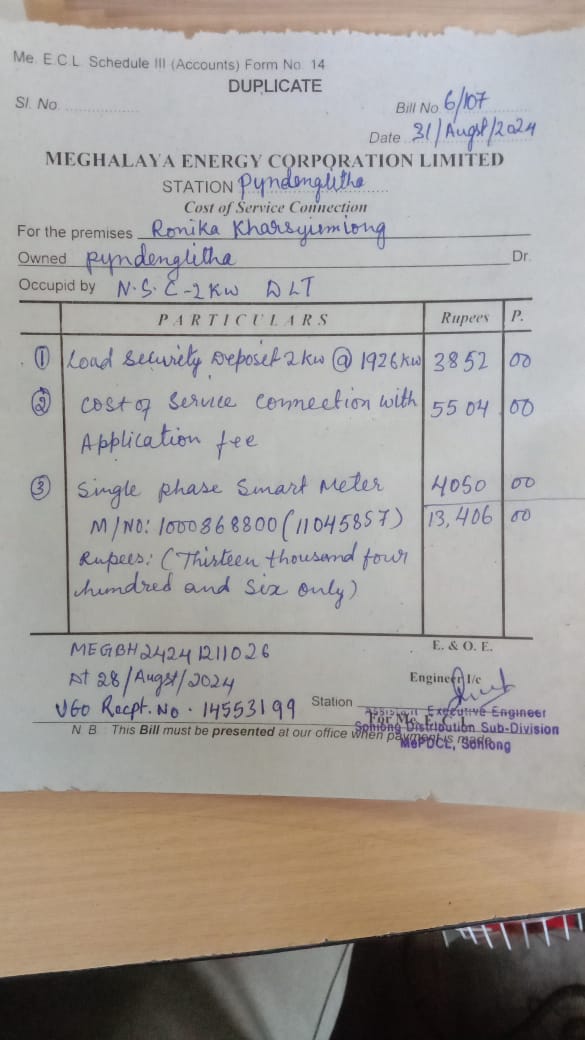 Me. E.C.L. Schedule III (Accounts) Form No. 14
DUPLICATE
Sl. No.
Bill No. 6/107
Date 31/Augst/2024
MEGHALAYA ENERGY CORPORATION LIMITED
STATION Pyndenglitha
Cost of Service Connection
For the premises Ronika Kharsyiemiong
Owned Pyndenglitha Dr.
Occupid by N.S.C-2KW DLT
PARTICULARS Rupees P.
① Load Security Deposit 2 kw @ 1926 kw 3852 00
② Cost of Service Connection with 5504 00
Application fee
③ Single phase Smart Meter 4050 00
M/NO: 1000368800 (11045857) 13,406 00
Rupees: (Thirteen thousand four
hundred and Six only)
E. & O. E.
MEGBH24241211026
At 28/Augst/2024
Engineer I/c
VGO Recpt. No. 14553199
Station
Assistant Executive Engineer
For Me. E. C. L.
Sohiong Distribution Sub-Division
N B This Bill must be presented at our office when payment is made
MePDCL, Sohiong